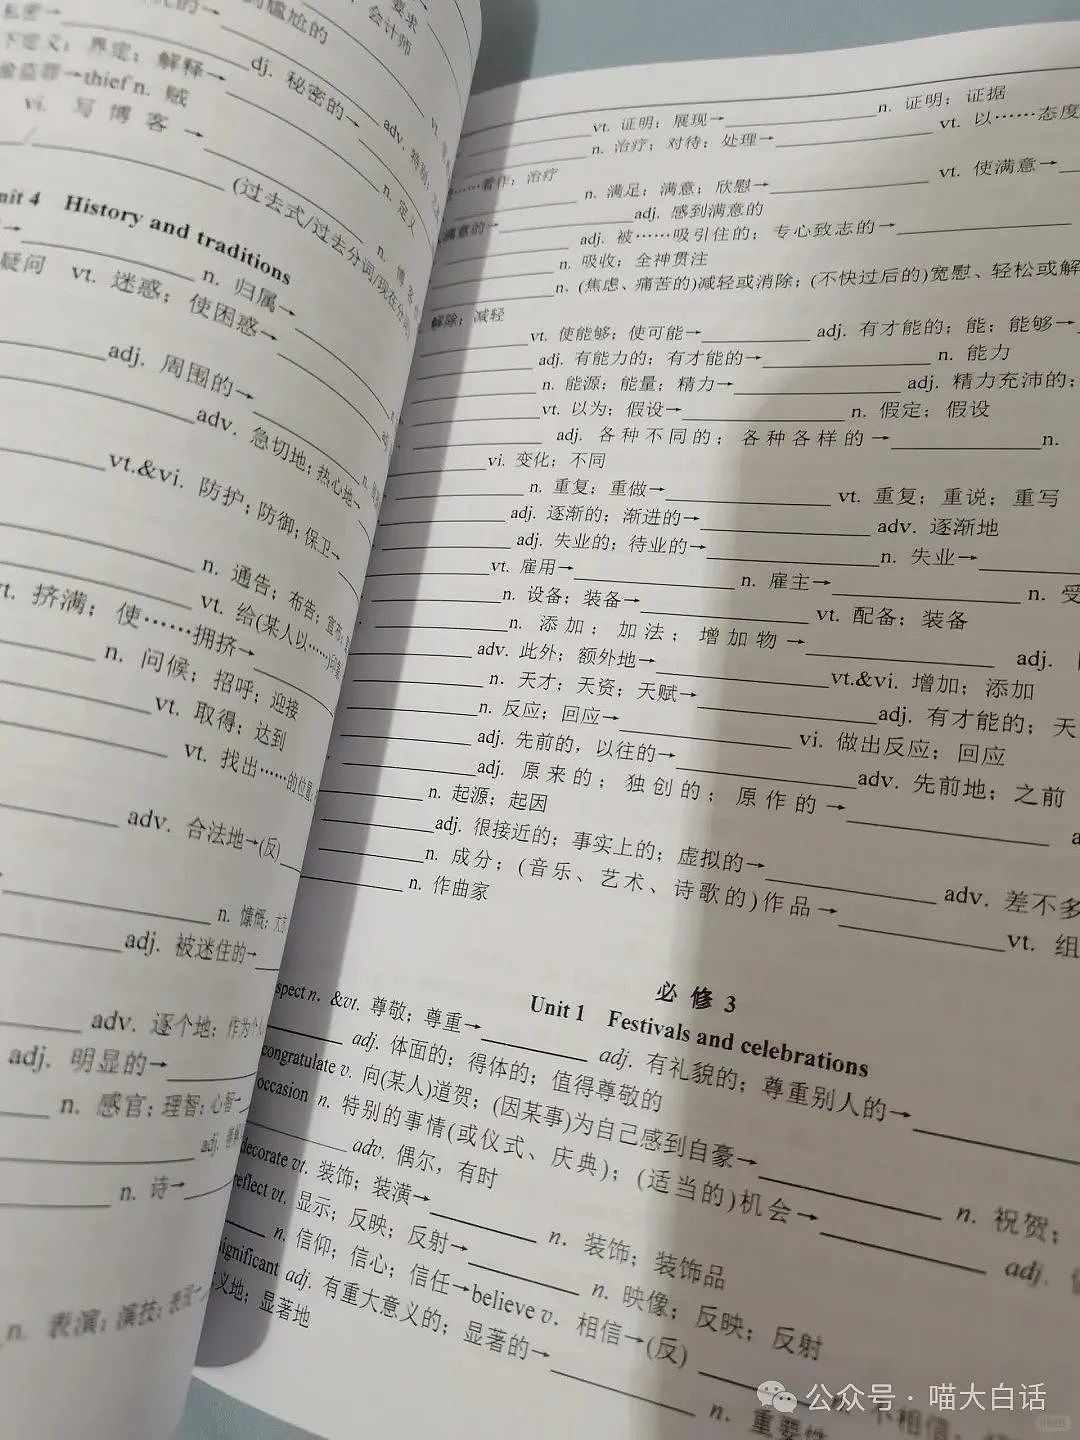 要求
会计师
尴尬的
私密→
adj. 秘密的→
下定义；界定；解释→
adv. 特别；
偷盗罪→thief n. 贼
n. 定义
vi. 写博客→
n. 博客
(过去式/过去分词/现在分词)
Unit 4 History and traditions
n. 归属→
疑问 vt. 迷惑；使困惑→
adj. 周围的→
adv. 急切地；热心地→
vt.&vi. 防护；防御；保卫→
n. 通告；布告；宣布
vt. 给(某人以……)印象
vt. 挤满；使……拥挤→
n. 问候；招呼；迎接
vt. 取得；达到
vt. 找出……的位置
adv. 合法地→(反)
n. 慷慨；大方
adj. 被迷住的→
adv. 逐个地；
adj. 明显的→
n. 感官；理智；心智→
n. 诗→
n. 表演；演技；表现→
vt. 证明；展现→ n. 证明；证据
n. 治疗；对待；处理→ vt. 以……态度
……看作；治疗
n. 满足；满意；欣慰→ vt. 使满意→
满意的→ adj. 感到满意的
adj. 被……吸引住的；专心致志的→
n. 吸收；全神贯注
n. (焦虑、痛苦的)减轻或消除；(不快过后的)宽慰、轻松或解
解除；减轻
vt. 使能够；使可能→ adj. 有才能的；能；能够→
adj. 有能力的；有才能的→ n. 能力
n. 能源；能量；精力→ adj. 精力充沛的；
vt. 以为；假设→ n. 假定；假设
adj. 各种不同的；各种各样的→ n.
vi. 变化；不同
n. 重复；重做→ vt. 重复；重说；重写
adj. 逐渐的；渐进的→ adv. 逐渐地
adj. 失业的；待业的→ n. 失业→
vt. 雇用→ n. 雇主→ n. 受
n. 设备；装备→ vt. 配备；装备
n. 添加；加法；增加物→ adj.
adv. 此外；额外地→ vt.&vi. 增加；添加
n. 天才；天资；天赋→ adj. 有才能的；天
n. 反应；回应→ vi. 做出反应；回应
adj. 先前的，以往的→ adv. 先前地；之前
adj. 原来的；独创的；原作的→
n. 起源；起因
adj. 很接近的；事实上的；虚拟的→ adv. 差不多
n. 成分；(音乐、艺术、诗歌的)作品→ vt. 组
n. 作曲家
必修 3
Unit 1 Festivals and celebrations
spect n. &vt. 尊敬；尊重→ adj. 有礼貌的；尊重别人的→
adj. 体面的；得体的；值得尊敬的
congratulate v. 向(某人)道贺；(因某事)为自己感到自豪→ n. 祝贺；
occasion n. 特别的事情(或仪式、庆典)；(适当的)机会→ adj.
adv. 偶尔，有时
decorate vt. 装饰；装潢→ n. 装饰；装饰品
reflect vt. 显示；反映；反射→ n. 映像；反映；反射
n. 信仰；信心；信任→believe v. 相信→(反) v. 不相信
significant adj. 有重大意义的；显著的→ n. 重要性
义地；显著地
公众号·喵大白话